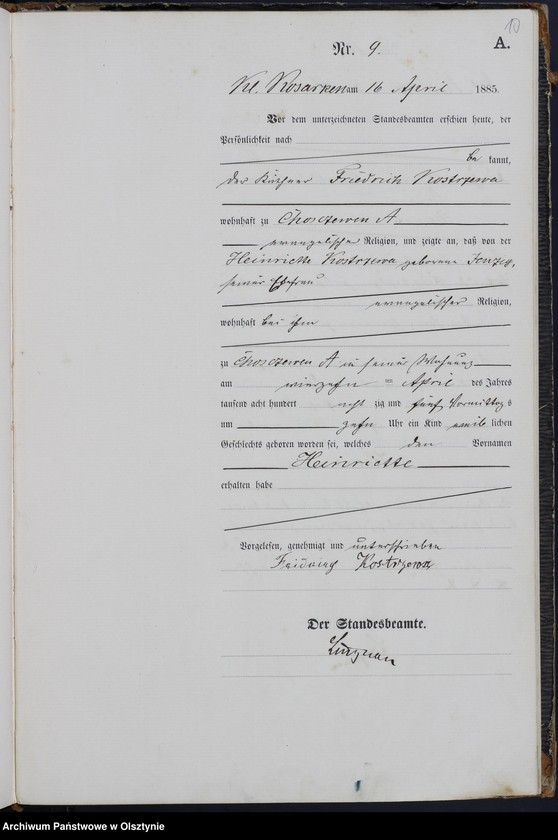 10
A.
Nr. 9.
Kl. Rosarken am 16 April 1885.
Vor dem unterzeichneten Standesbeamten erschien heute, der
Persönlichkeit nach
be kannt,
der Büchner Friedrich Kostrzewa
wohnhaft zu Choszewen A
evangelischer Religion, und zeigte an, daß von der
Heinriette Kostrzewa geborene
seiner Ehefrau
evangelischer Religion,
wohnhaft bei ihm
zu Choszewen A in seiner Wohnung
am vierzehn = April des Jahres
tausend acht hundert acht zig und fünf Vormittag s
um zehn Uhr ein Kind weib lichen
Geschlechts geboren worden sei, welches den Vornamen
Heinriette
erhalten habe
Vorgelesen, genehmigt und unterschrieben
Kostrzewa
Der Standesbeamte.
Archiwum Państwowe w Olsztynie